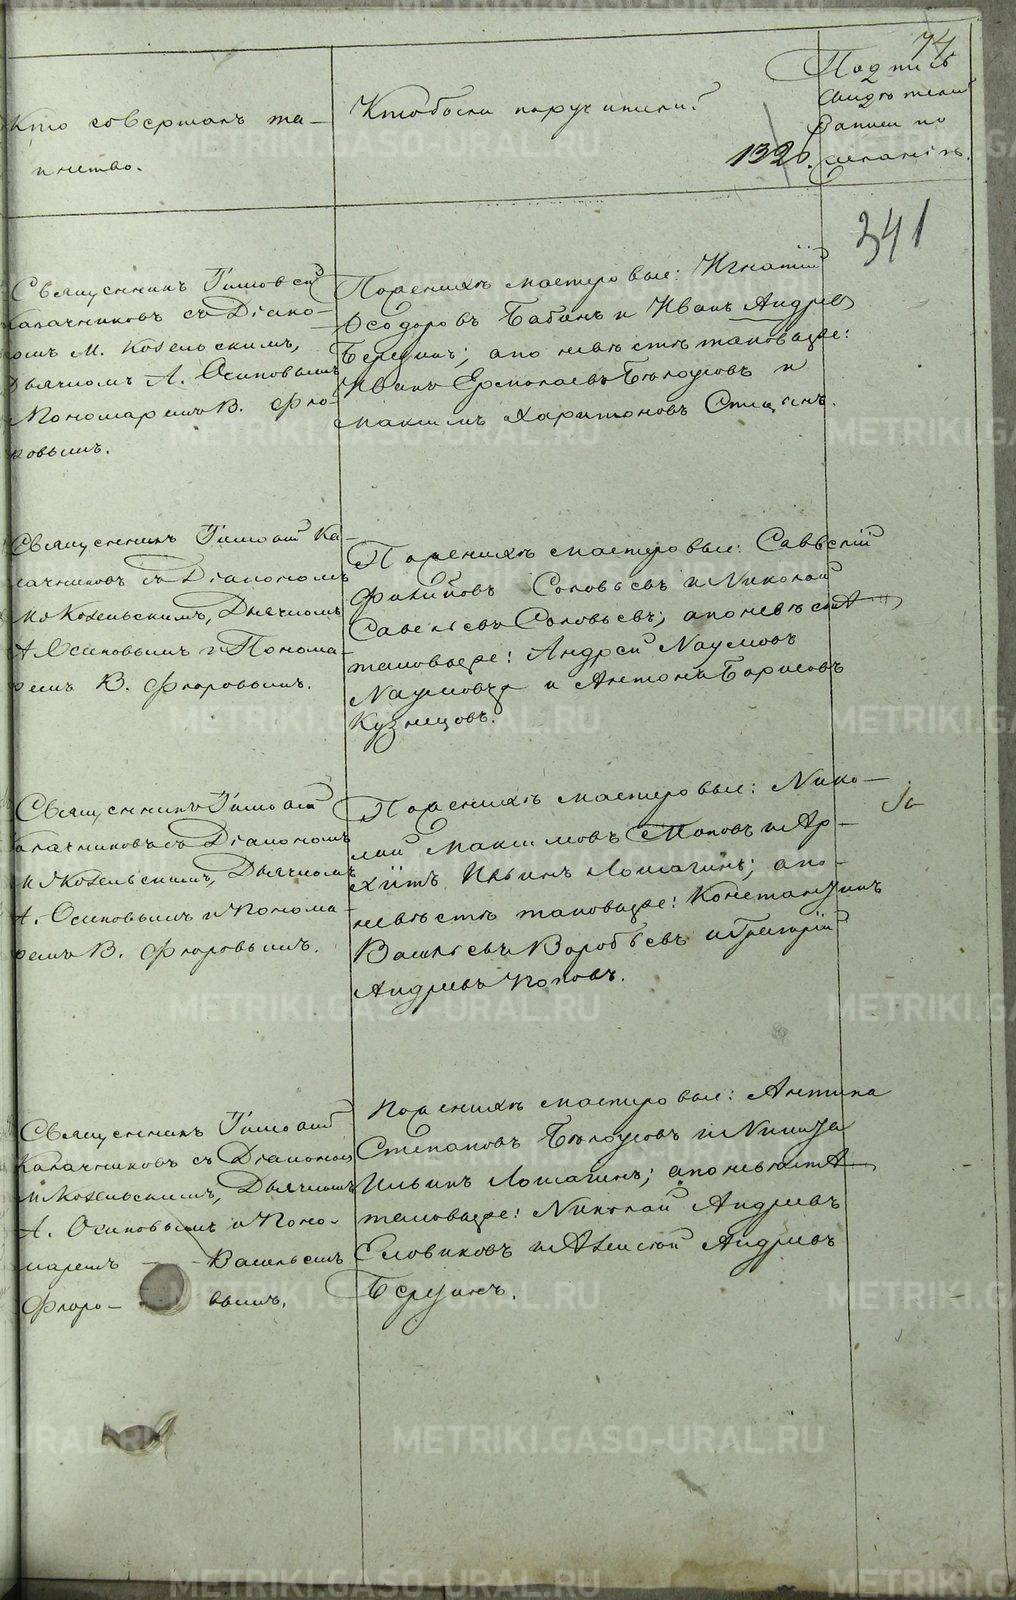 74
Кто совершалъ та-
инство.
Кто были поручители?
1320.
Подпись
свидѣтелей
записи по
желанію.
341
Священникъ Тимовей
Калачниковъ съ Діако-
номъ М. Козельскимъ,
Дьячкомъ А. Осиповымъ
Пономаремъ В. Фло-
ровымъ.
По женихѣ мастеровые: Игнатій
Ѳеодоровъ Бабинъ и Иванъ Андрѣевъ
Берсинъ; а по невѣстѣ таковыеже:
Иванъ Ермолаевъ Бѣлоусовъ и
Максимъ Харитоновъ
Священникъ Тимоѳей Ка-
лачниковъ съ Діакономъ
М. Козельскимъ, Дьячкомъ
А. Осиповымъ и Понома-
ремъ В. Флоровымъ.
По женихѣ мастеровые: Савватій
Филиповъ Соловьевъ и Николай
Савельевъ Соловьевъ; а по невѣстѣ
таковыеже: Андрей Наумовъ
Наумовъ и Антонъ Борисовъ
Кузнецовъ.
Священникъ Тимоѳей
Калачниковъ съ Діакономъ
М. Козельскимъ, Дьячкомъ
А. Осиповымъ и Понома-
ремъ В. Флоровымъ.
По женихѣ мастеровые: Нико-
лай Максимовъ Поповъ и Ар-
хипъ Ильинъ Лошагинъ; а по
невѣстѣ таковыеже: Константинъ
Васильевъ Воробьевъ и Григорій
Андреевъ Поповъ.
Священникъ Тимоѳей
Калачниковъ съ Діакономъ
М. Козельскимъ, Дьячкомъ
А. Осиповымъ и Поно-
маремъ Васильемъ
Флоро- вымъ.
По женихѣ мастеровые: Антипа
Степановъ Бѣлоусовъ и Никита
Ильинъ Лошагинъ; а по невѣстѣ
таковыеже: Николай Андреевъ
Словиковъ и Алексѣй Андреевъ
Берсинъ.
METRIKI.GASO-URAL.RU